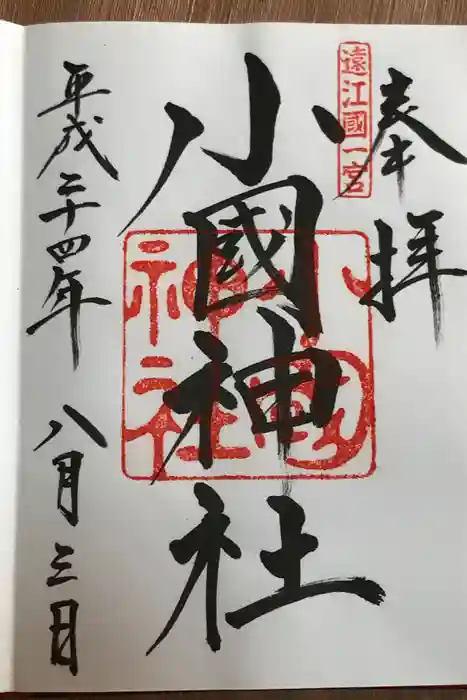 奉拝
遠江國一宮
小國神社
小國神社
平成二十四年八月三日